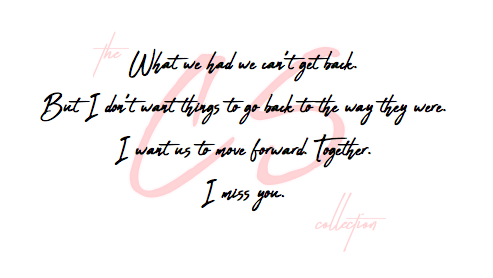 the
What we had we can't get back.
CS
But I don't want things to go back to the way they were.
I want us to move forward. Together.
I miss you.
collection